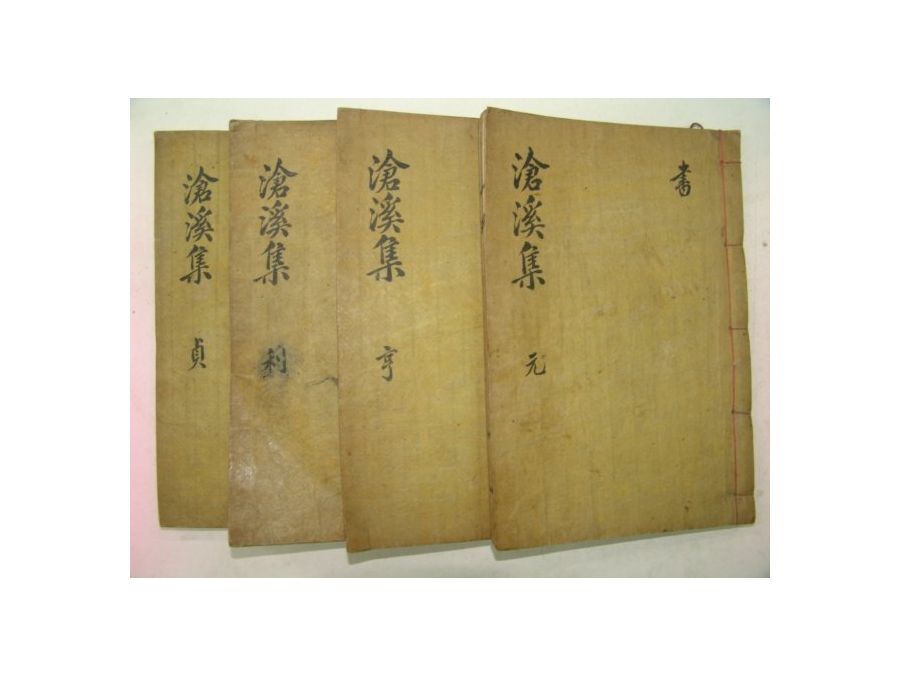 書
滄溪集 元
滄溪集 亨
滄溪集 利
滄溪集 貞